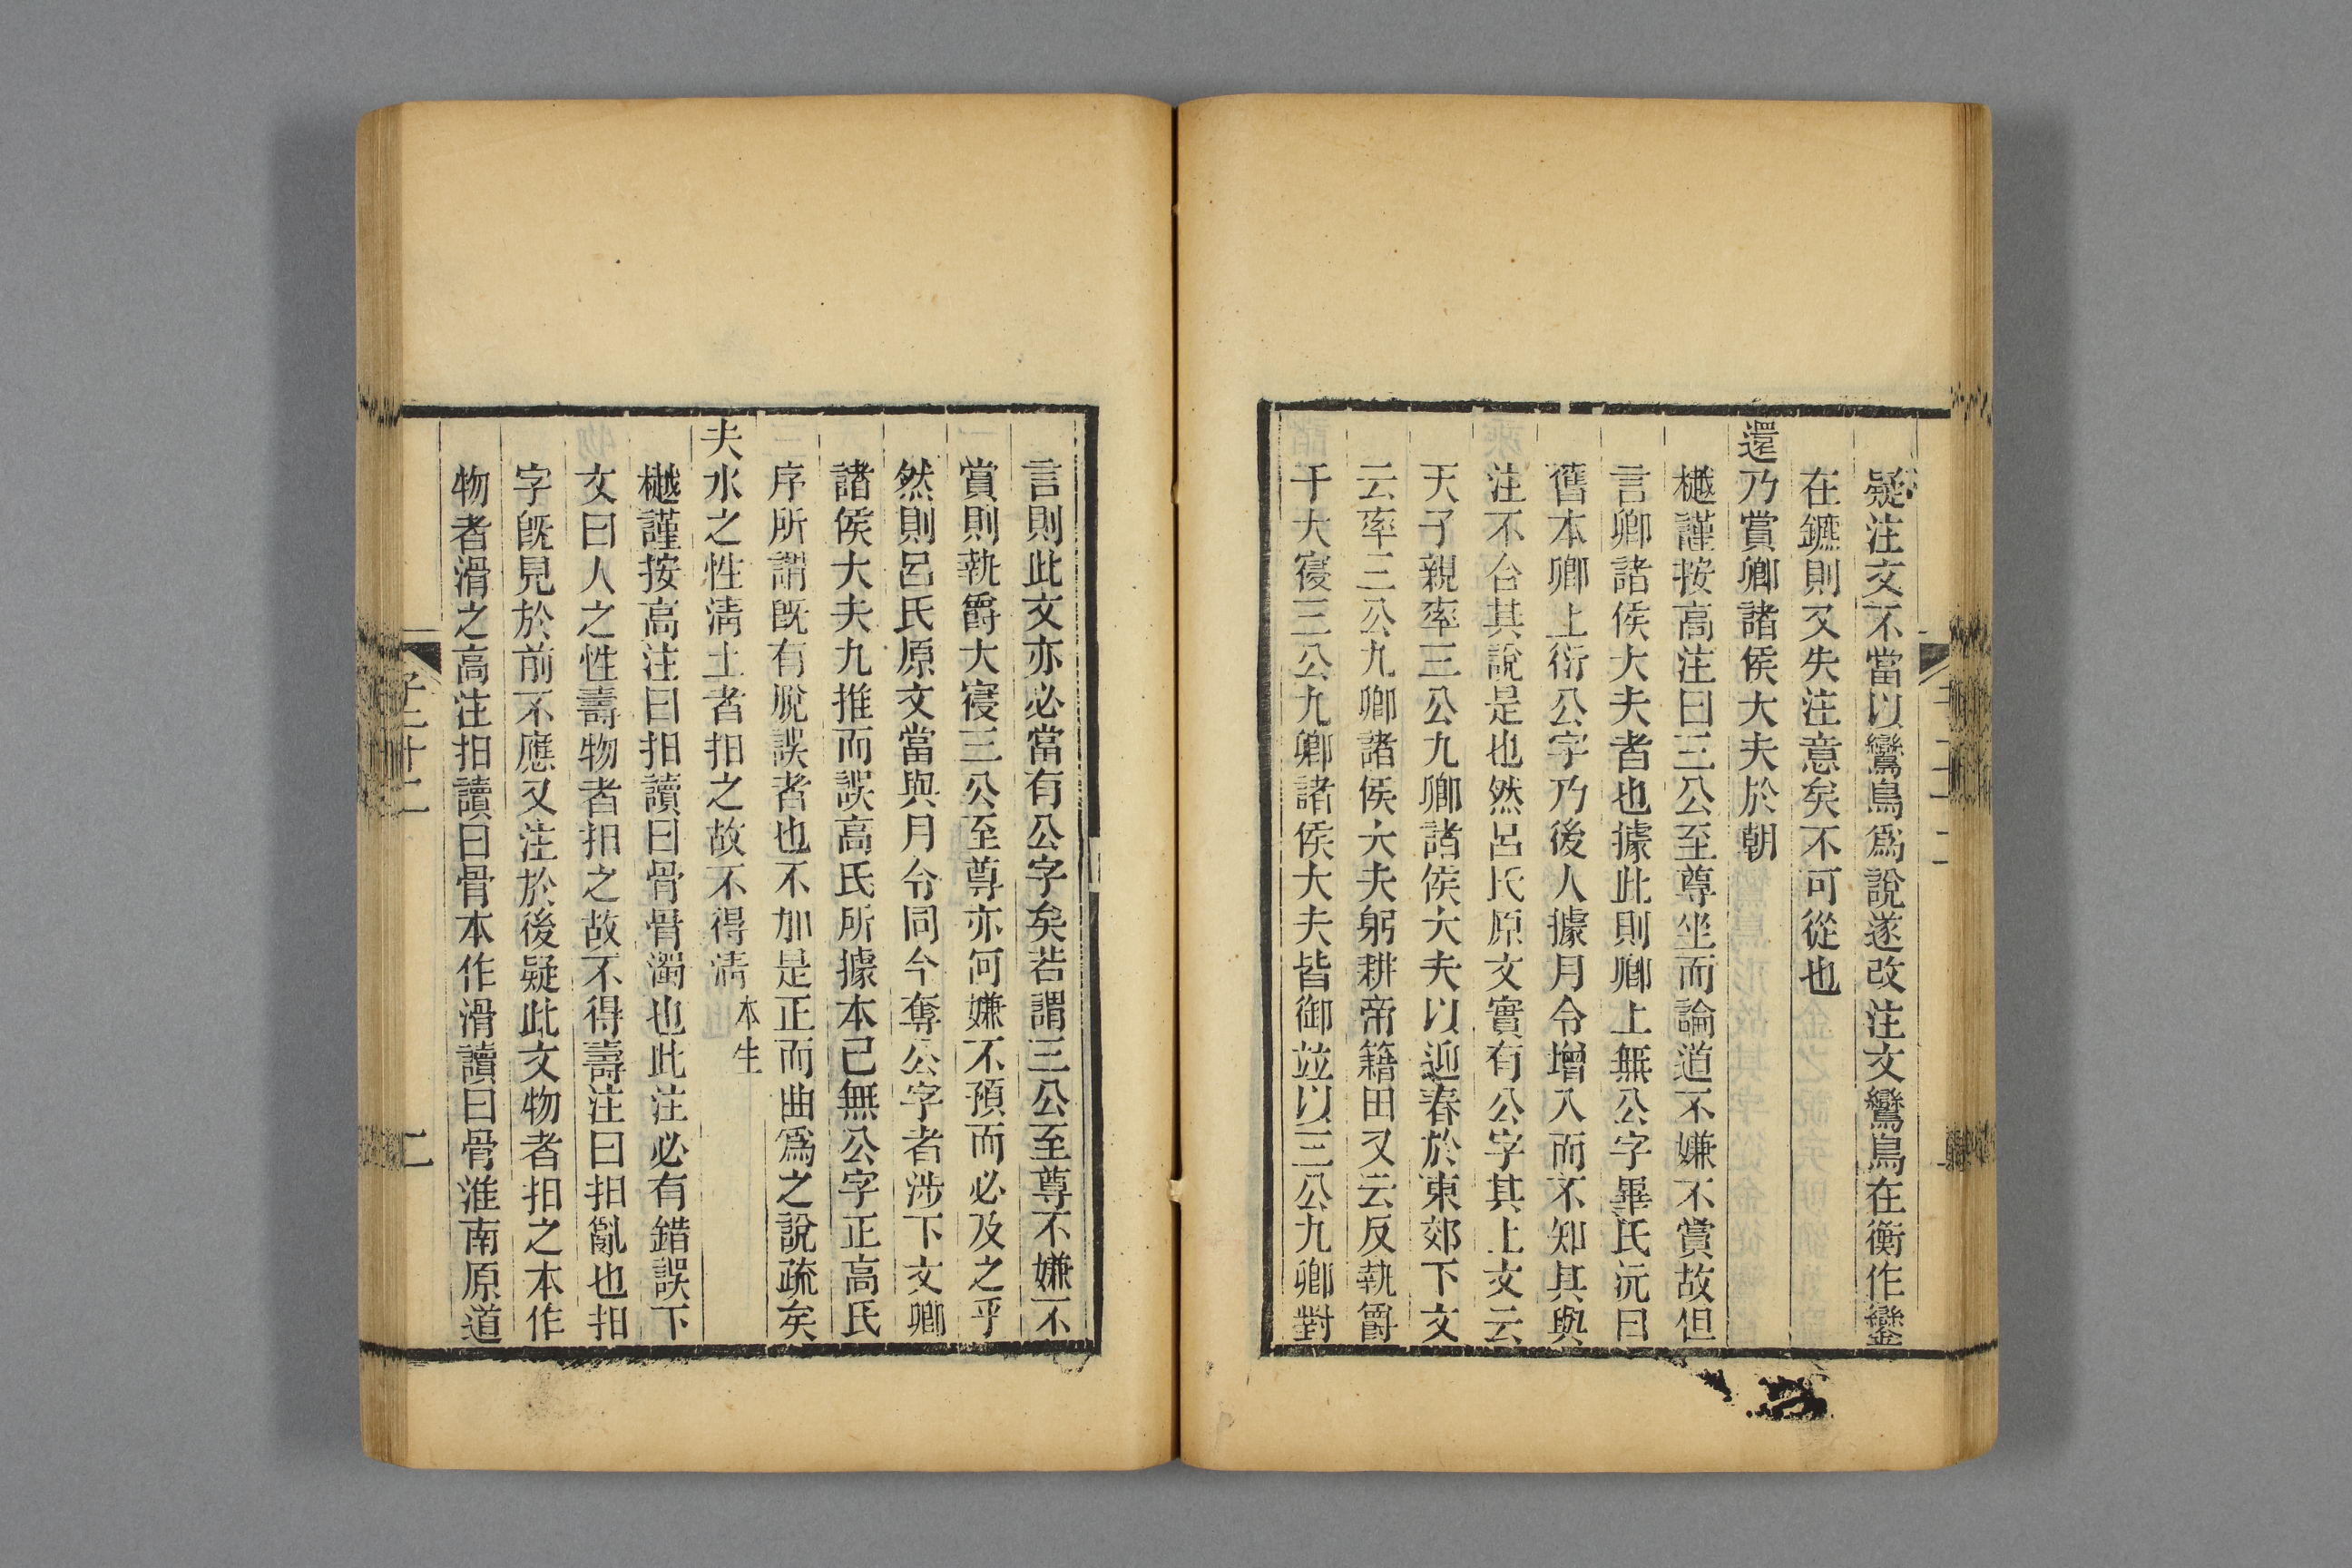 疑注文不當以鸞鳥爲說遂改注文鸞鳥在衡作鑾
在鑣則又失注意矣不可從也
還乃賞卿諸侯大夫於朝
樾謹按高注曰三公至尊坐而論道不嫌不賞故但
言卿諸侯大夫者也據此則卿上無公字畢氏沅曰
舊本卿上衍公字乃後人據月令增入而不知其與
注不合其說是也然呂氏原文實有公字其上文云
天子親率三公九卿諸侯大夫以迎春於東郊下文
云率三公九卿諸侯大夫躬耕帝籍田又云反執爵
于大寑三公九卿諸侯大夫皆御竝以三公九卿對
言則此文亦必當有公字矣若謂三公至尊不嫌不
賞則執爵大寑三公至尊亦何嫌不預而必及之乎
然則呂氏原文當與月令同今奪公字者涉下文卿
諸侯大夫九推而誤高氏所據本已無公字正高氏
序所謂旣有脫誤者也不加是正而曲爲之說疏矣
夫水之性淸土者抇之故不得淸 本生
樾謹按高注曰抇讀曰骨骨濁也此注必有錯誤下
文曰人之性壽物者抇之故不得壽注曰抇亂也抇
字旣見於前不應又注於後疑此文物者抇之本作
物者滑之高注抇讀曰骨本作滑讀曰骨淮南原道
子二十二
二